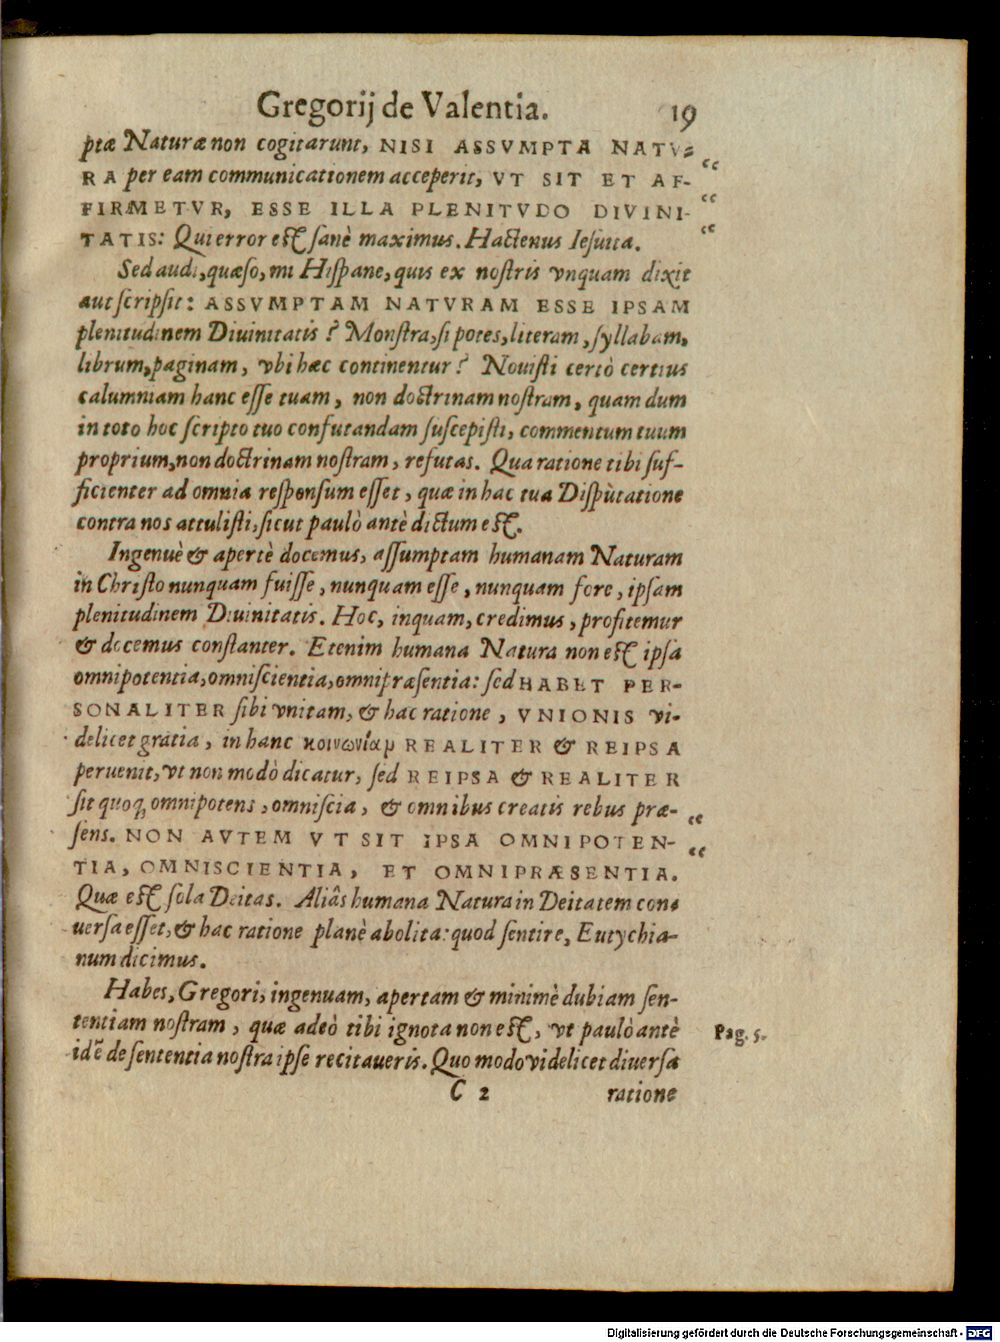 Gregorij de Valentia. 19
ptæ Naturæ non cogitarunt, NISI ASSVMPTA NATV-
RA per eam communicationem acceperit, VT SIT ET AF- “
FIRMETVR, ESSE ILLA PLENITVDO DIVINI- “
TATIS: Qui error est sanè maximus. Hactenus Iesuita. “
Sed audi, quæso, mi Hispane, quis ex nostris vnquam dixit
aut scripsit: ASSVMPTAM NATVRAM ESSE IPSAM
plenitudinem Diuinitatis? Monstra, si potes, literam, syllabam,
librum, paginam, vbi hæc continentur? Nouisti certò certius
calumniam hanc esse tuam, non doctrinam nostram, quam dum
in toto hoc scripto tuo confutandam suscepisti, commentum tuum
proprium, non doctrinam nostram, refutas. Qua ratione tibi suf-
ficienter ad omnia responsum esset, quæ in hac tua Disputatione
contra nos attulisti, sicut paulò antè dictum est.
Ingenuè & apertè docemus, assumptam humanam Naturam
in Christo nunquam fuisse, nunquam esse, nunquam fore, ipsam
plenitudinem Diuinitatis. Hoc, inquam, credimus, profitemur
& docemus constanter. Etenim humana Natura non est ipsa
omnipotentia, omniscientia, omnipræsentia: sed HABET PER-
SONALITER sibi vnitam, & hac ratione, VNIONIS vi-
delicet gratia, in hanc κοινωνίαμ REALITER & REIPSA
peruenit, vt non modò dicatur, sed REIPSA & REALITER
sit quoq; omnipotens, omniscia, & omnibus creatis rebus præ-
sens. NON AVTEM VT SIT IPSA OMNIPOTEN- “
TIA, OMNISCIENTIA, ET OMNIPRÆSENTIA. “
Quæ est sola Deitas. Aliâs humana Natura in Deitatem con-
uersa esset, & hac ratione planè abolita: quod sentire, Eutychia-
num dicimus.
Habes, Gregori, ingenuam, apertam & minimè dubiam sen-
tentiam nostram, quæ adeò tibi ignota non est, vt paulò antè Pag. 5.
idẽ de sententia nostra ipse recitaueris. Quo modo videlicet diuersa
C 2 ratione
Digitalisierung gefördert durch die Deutsche Forschungsgemeinschaft - DFG